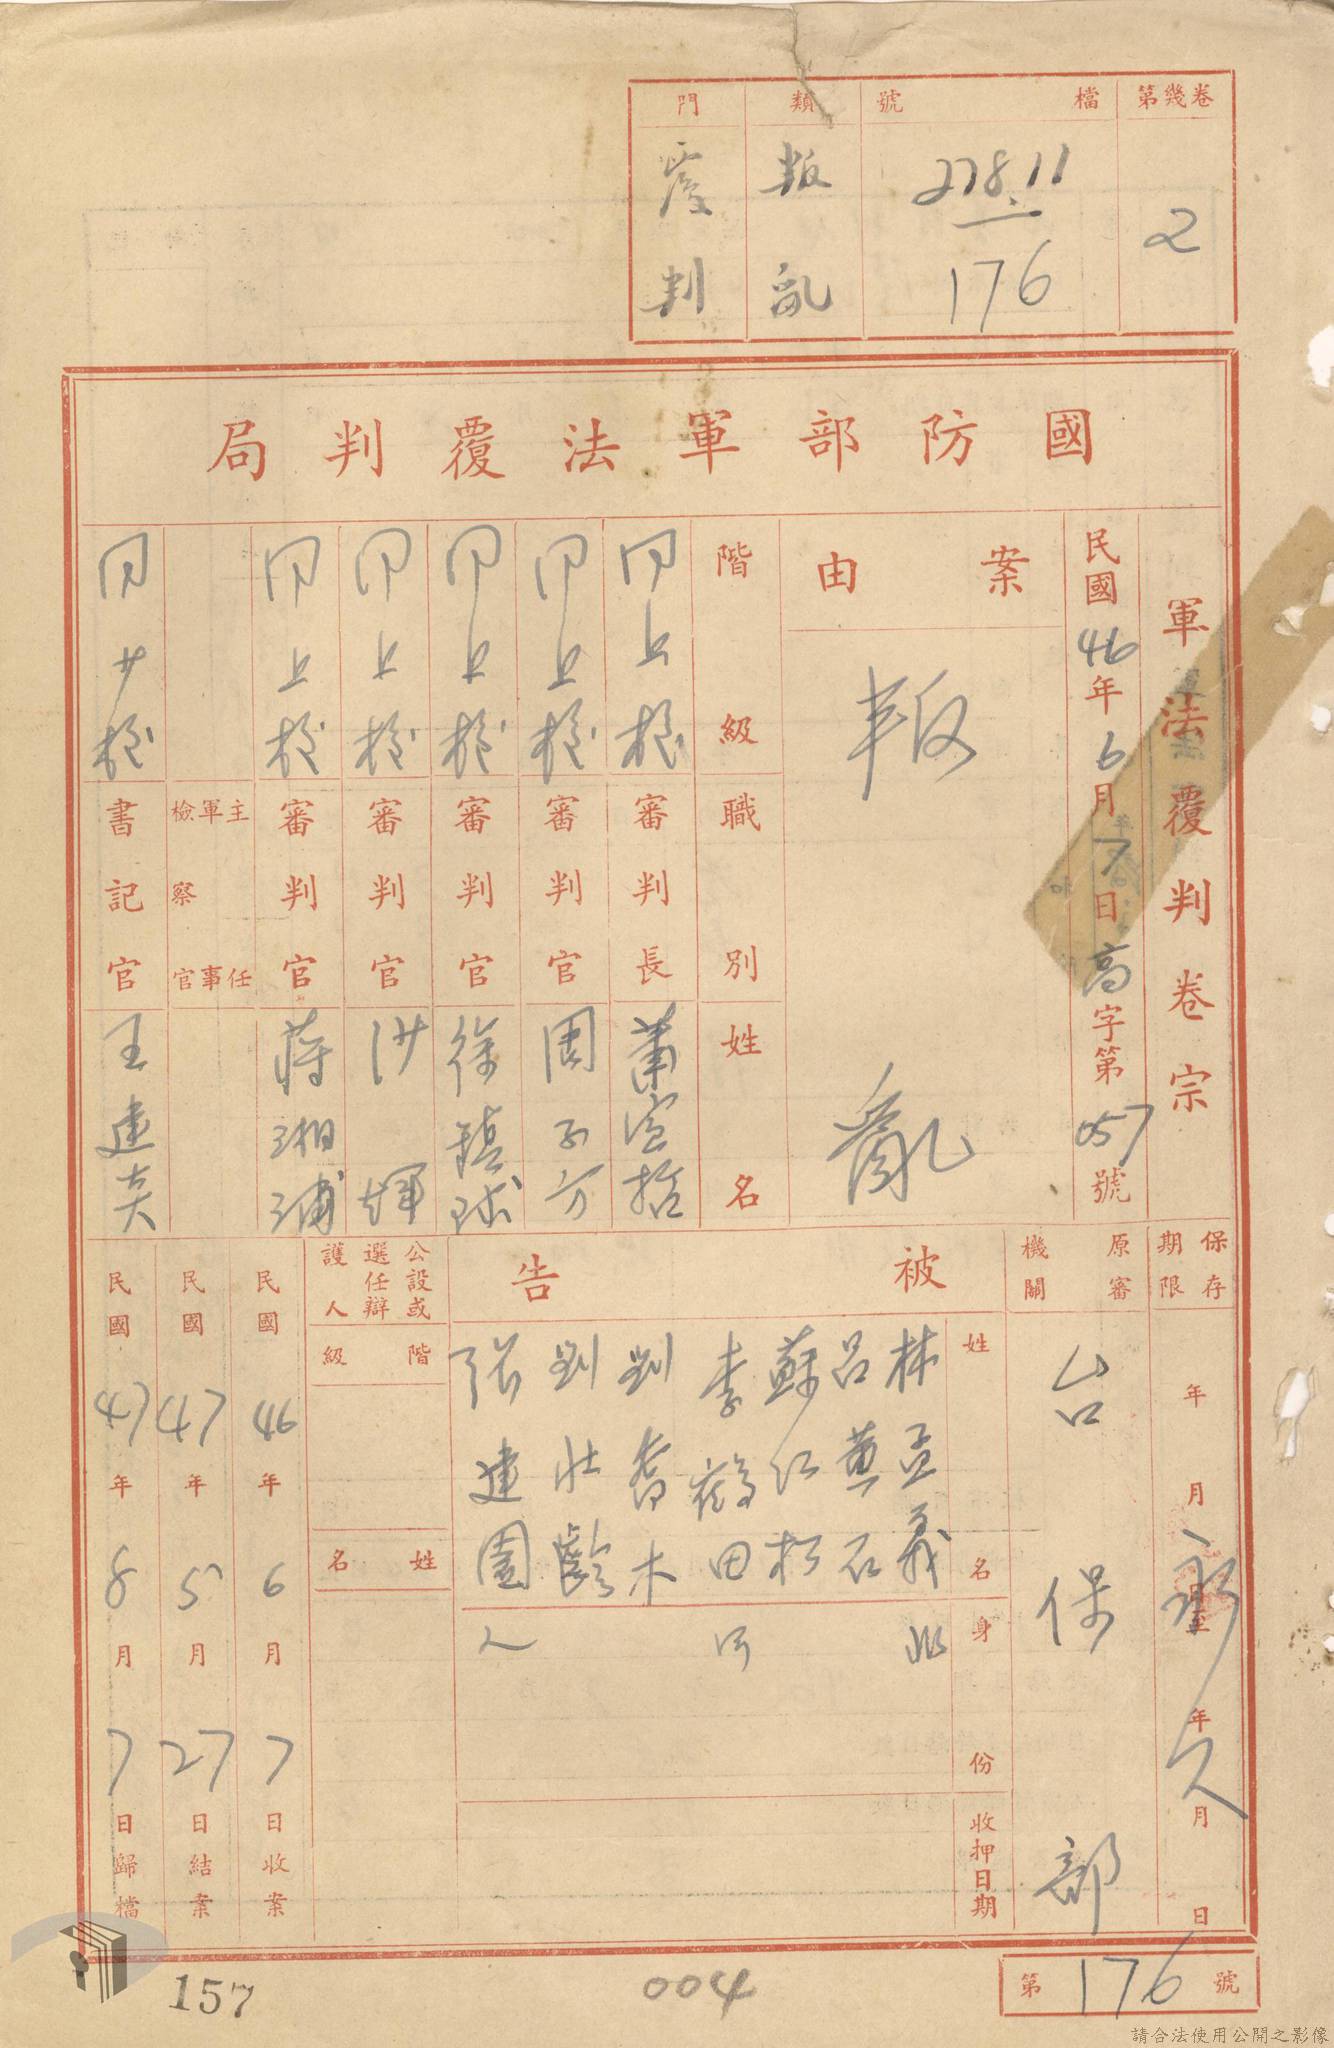 第幾卷
2
檔號
278.11
176
類
叛亂
門
覆判
國防部軍法覆判局
軍法覆判卷宗
民國46年6月7日高字第057號
案由
叛亂
階級 職別 姓名
同上校 審判長 蕭宣哲
同上校 審判官 周子方
同上校 審判官 徐鎮球
同上校 審判官 洪輝
同上校 審判官 蔣湘浦
主任軍事檢察官
同少校 書記官 王建奕
保存期限
年月日至年月日
永久
原審機關
台保部
被告
姓名
身份
收押日期
林孟義
呂蕙石
蘇仁松
李鶴田
劉喬木
劉壯齡
張建園
等 人
公設或選任辯護人
階級
姓名
民國46年6月7日收案
民國47年5月27日結案
民國47年8月7日歸檔
第176號
004
157
請合法使用公開之影像